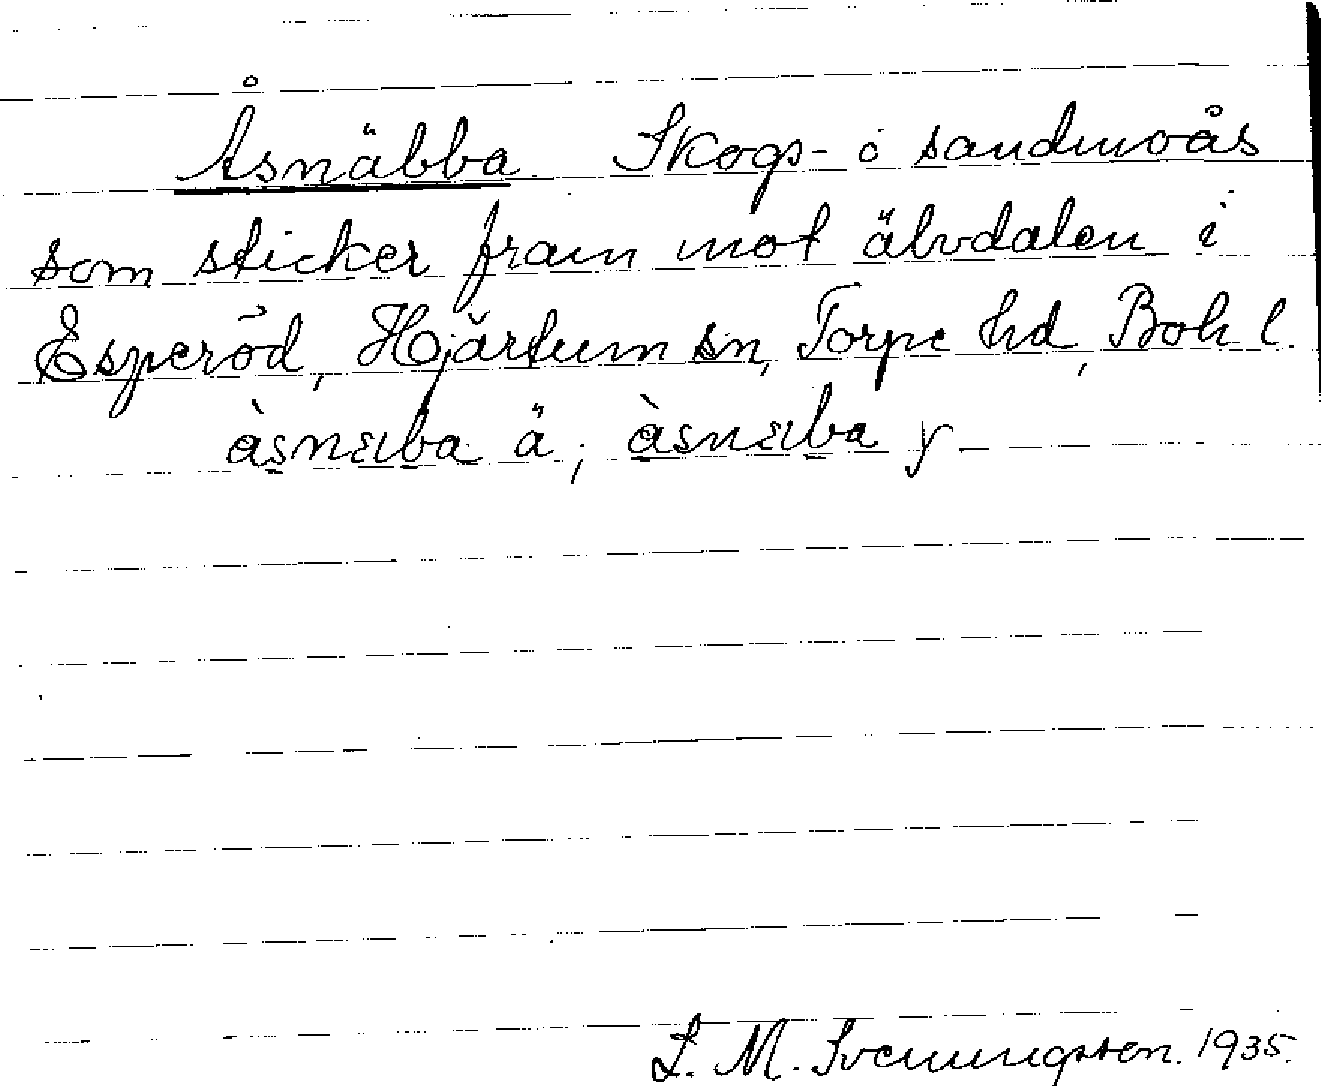 Åsnäbba. Skogs- o sandmoås
som sticker fram mot älvdalen i
Esperöd, Hjärtum sn, Torpe hd, Bohl.
àsnæba ä, àsnæba y
L. M. Svenungsson. 1935.